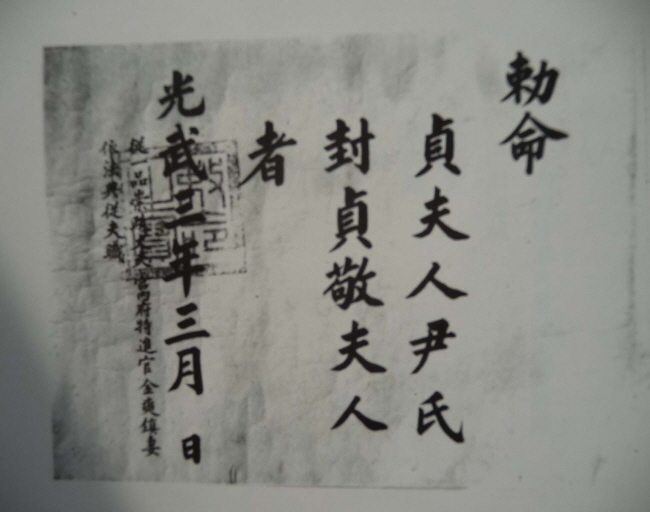 勅命
貞夫人尹氏
封貞敬夫人
者
光武三年三月 日
從一品崇政大夫宮內府特進官金奭鎮妻
依法典從夫職